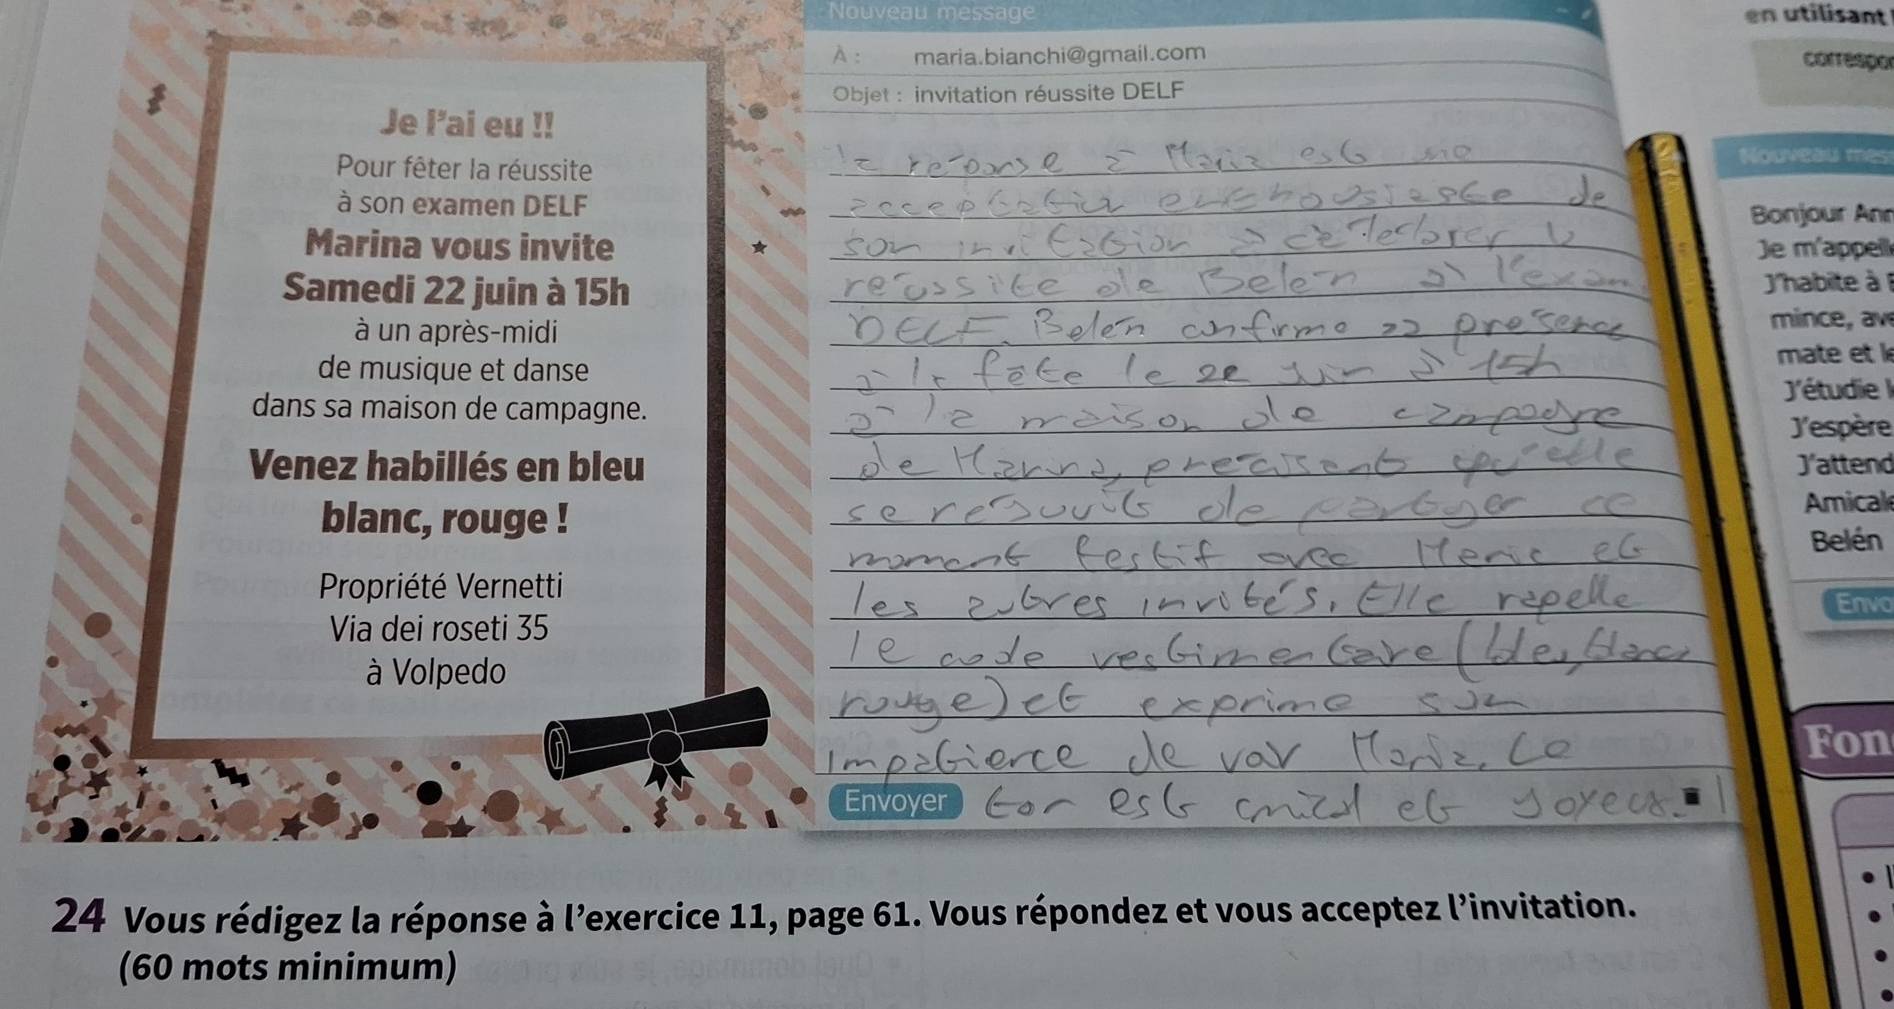 Je l'ai eu !!
Pour fêter la réussite
à son examen DELF
Marina vous invite
Samedi 22 juin à 15h
à un après-midi
de musique et danse
dans sa maison de campagne.
Venez habillés en bleu
blanc, rouge !
Propriété Vernetti
Via dei roseti 35
à Volpedo
Nouveau message
À : maria.bianchi@gmail.com
Objet : invitation réussite DELF
la réponse à Maria est
de
son invitation à la
réussite de Belén à l'exam
DELF. Belén confirme sa présence
à la fête le 22 juin à 15h
à la maison de campagne
de Marina, précisant qu'elle
se réjouit de partager ce
moment festif avec et
les autres invités. Elle rapelle
le code vestimentaire (bleu, blanc
rouge) et exprime son
impatience de voir Maria. Le
Envoyer
ton est amical et joyeux.
24 Vous rédigez la réponse à l'exercice 11, page 61. Vous répondez et vous acceptez l'invitation.
(60 mots minimum)
en utilisant
correspon
Nouveau mes
Bonjour Ann
Je m'appell
J'habite à
mince, ave
mate et le
J'étudie l
J'espère
J'attend
Amicale
Belén
Envo
Fon